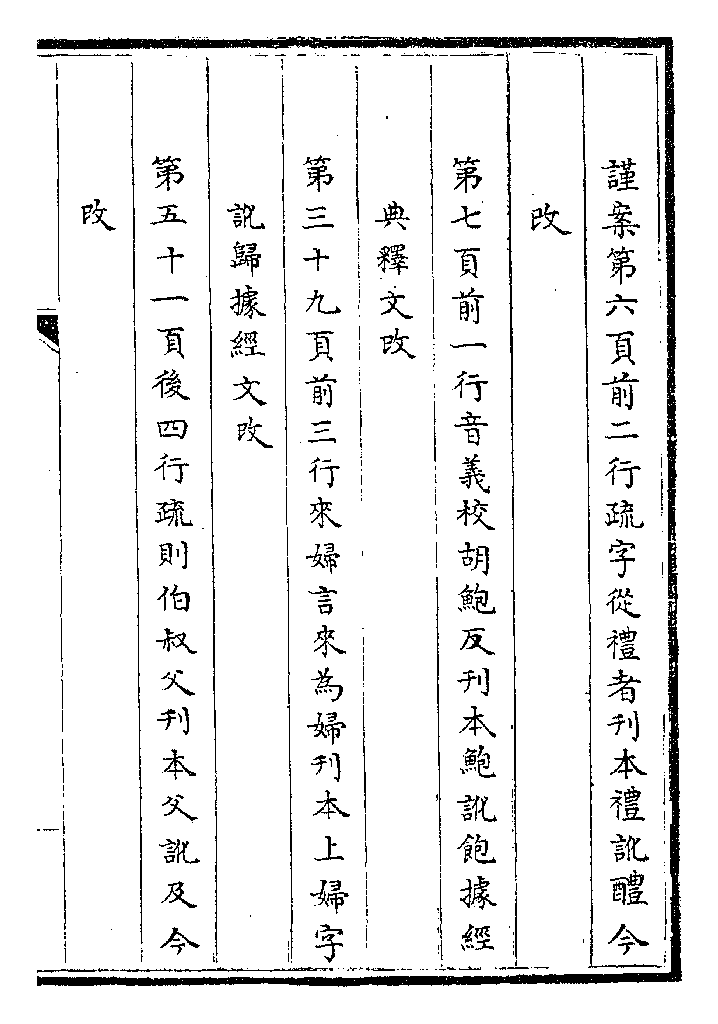 謹案第六頁前二行疏字從禮者刊本禮訛醴今
改
第七頁前一行音義校胡鮑反刊本鮑訛飽據經
典釋文改
第三十九頁前三行來婦言來為婦刊本上婦字
訛歸據經文改
第五十一頁後四行疏則伯叔父刊本父訛及今
改